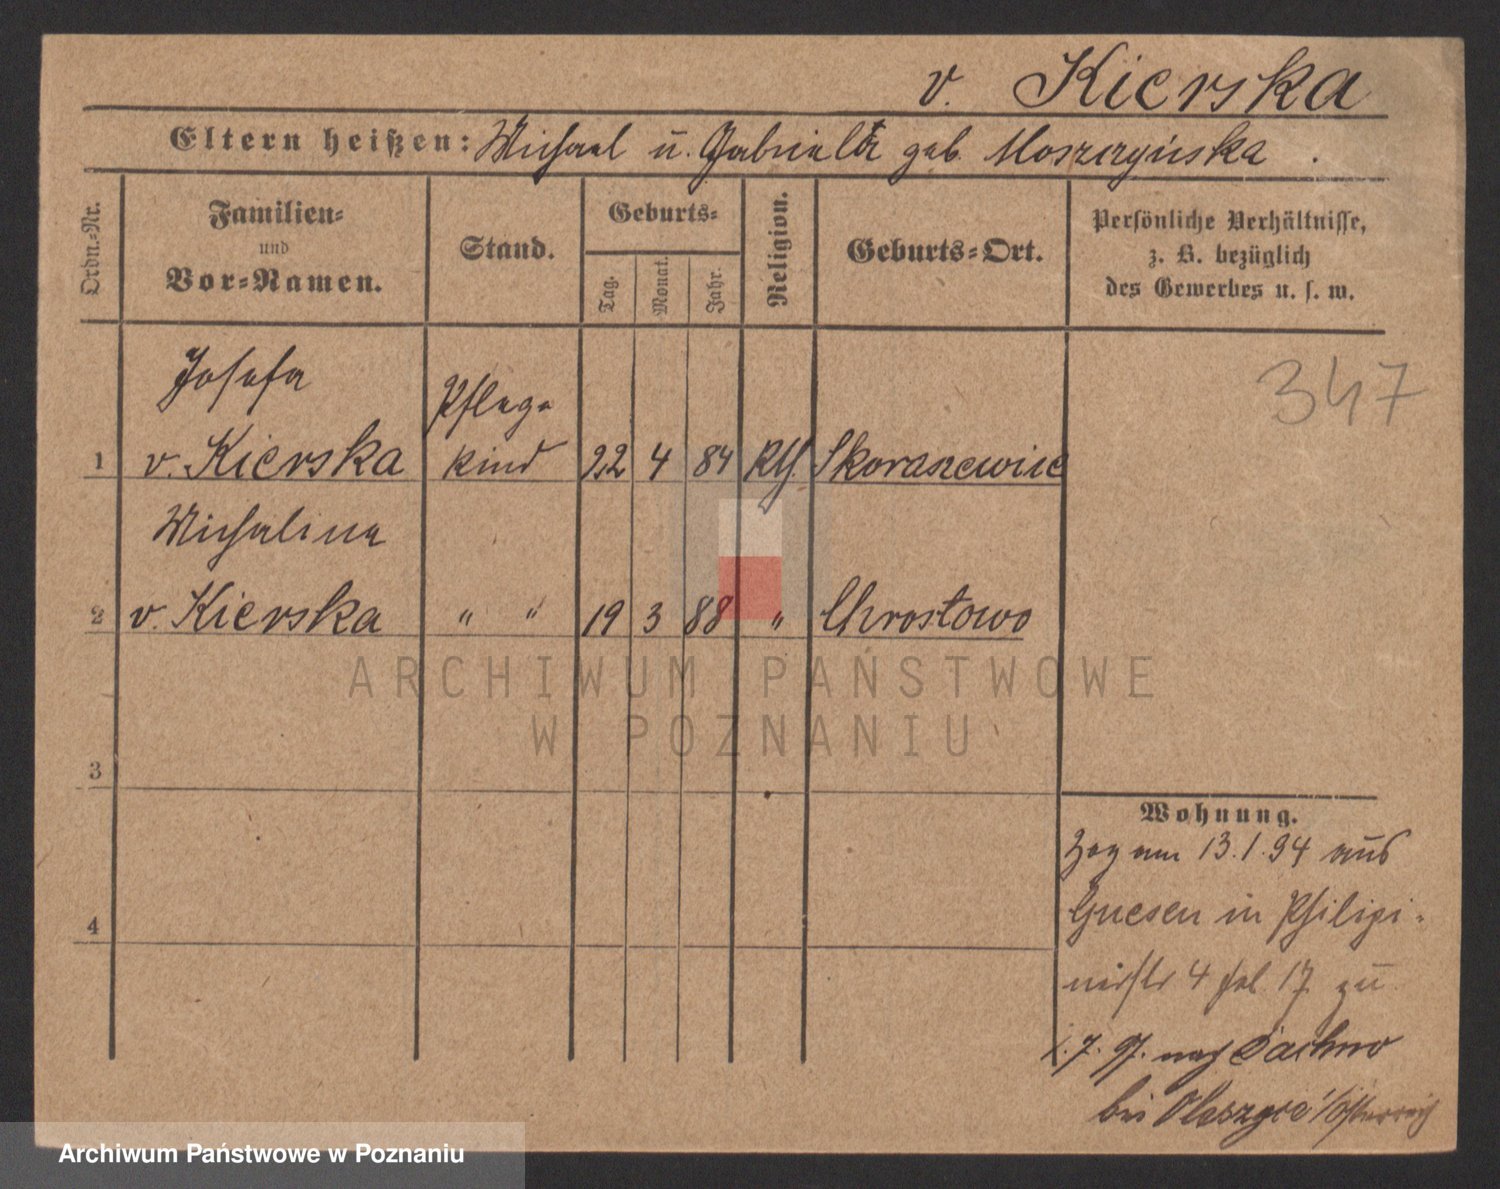 v. Kierska
Eltern heißen: Michael u. Gabriela geb. Moszczyńska.
Ordn.-Nr.
Familien-
und
Vor-Namen.
Stand.
Geburts-
Tag.
Monat.
Jahr.
Religion.
Geburts-Ort.
Persönliche Verhältnisse,
z. B. bezüglich
des Gewerbes u. s. w.
347
Josefa
Pflege
1 v. Kierska kind 22 4 84 Kth. Skoraszewice
Michalina
2 v. Kierska " " 19 3 88 " Chrostowo
ARCHIWUM PAŃSTWOWE
W POZNANIU
3
Wohnung.
Zog am 13.1.94 aus
4
Gnesen in Philipi-
nistr 4 fol 17 zu
7. 97. nach
bei Oleszyce i/Österreich
Archiwum Państwowe w Poznaniu